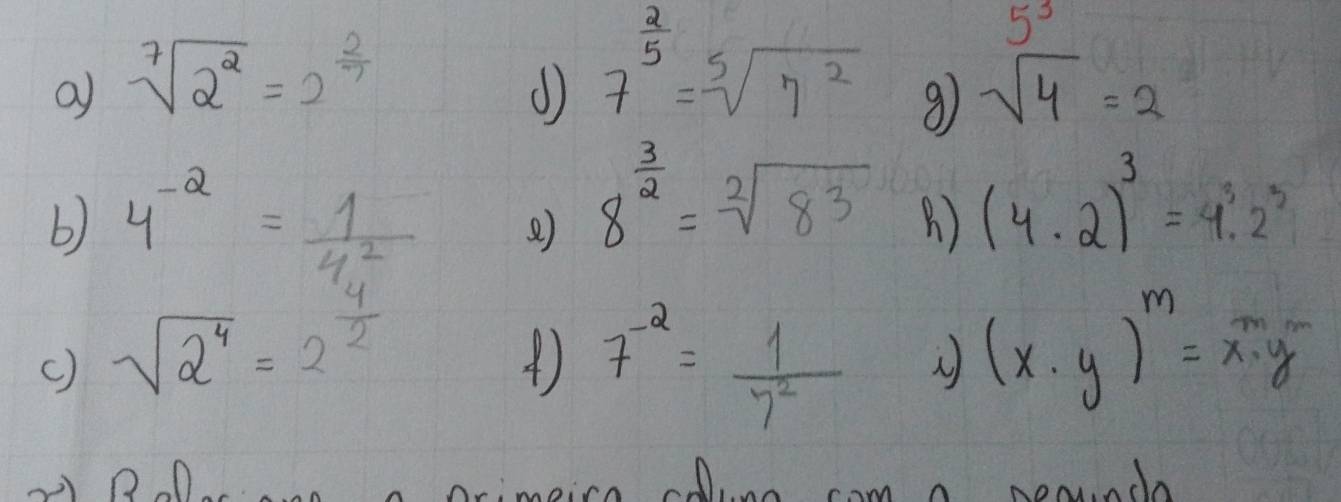 5³
a) ⁷√2² = 2^(2/7) d) 7^(2/5) = ⁵√7² g) √4 = 2
b) 4⁻² = 1/4² e) 8^(3/2) = ²√8³ h) (4 . 2)³ = 4³ . 2³
c) √2⁴ = 2^(4/2) f) 7⁻² = 1/7² i) (x . y)^m = x^m . y^m
a primeira coluna com a segunda